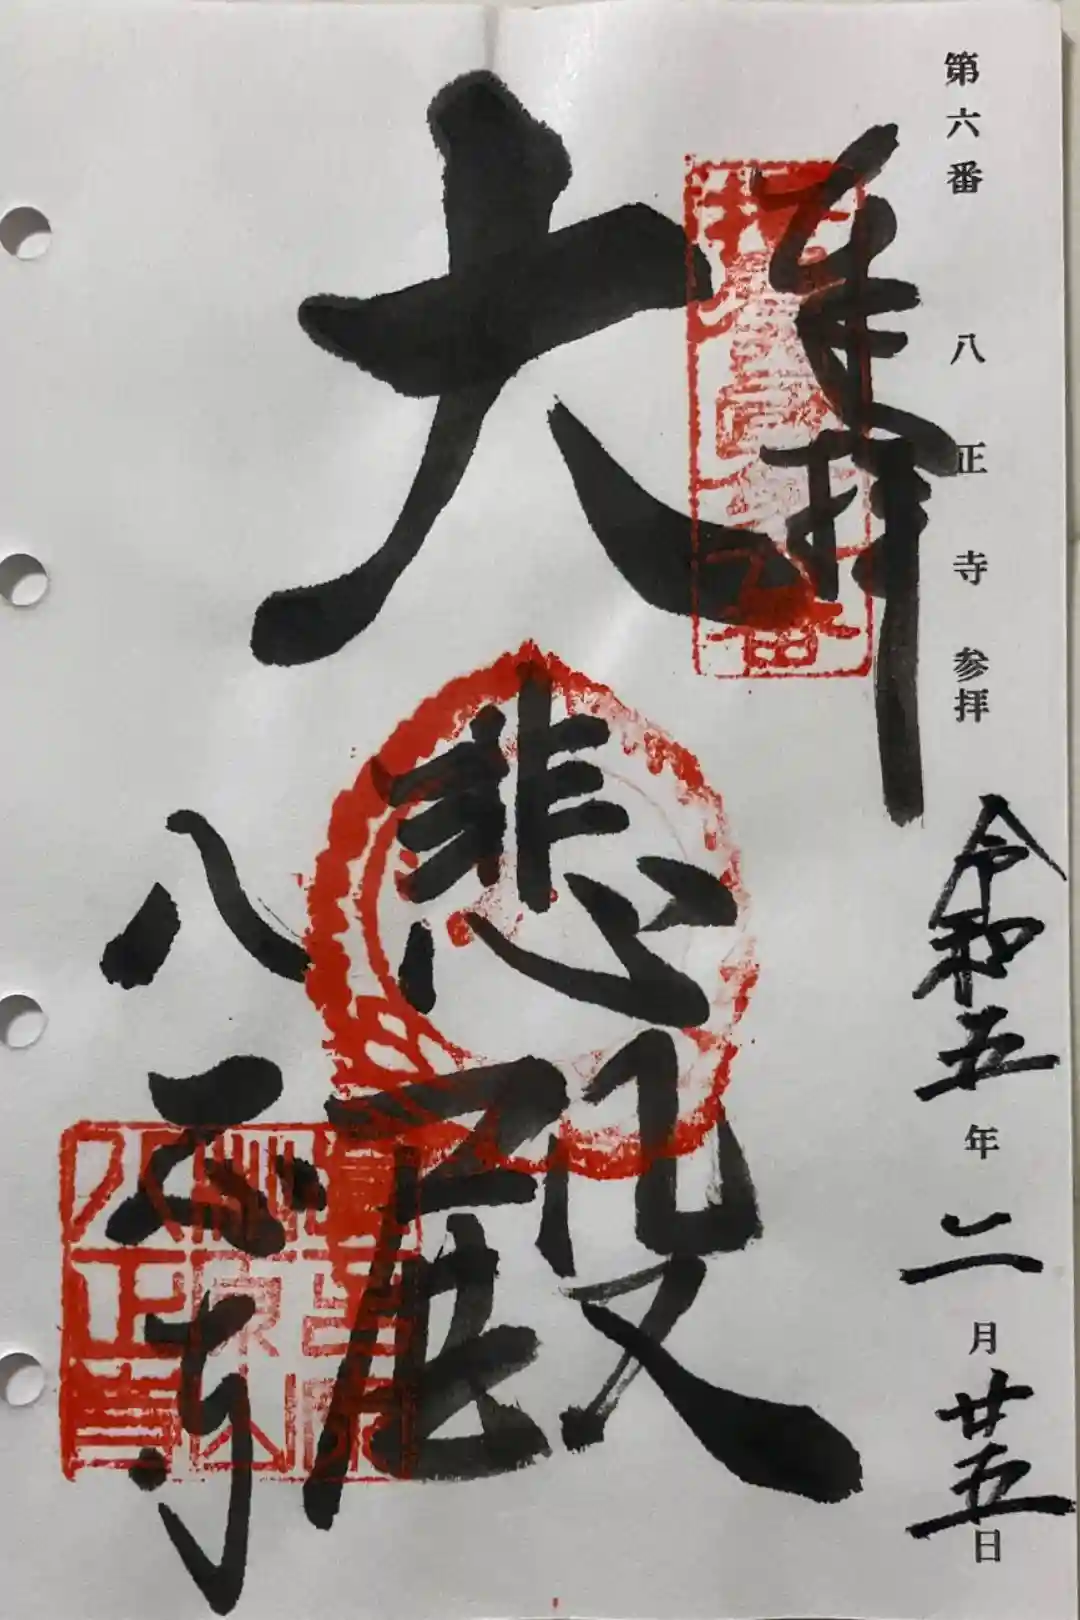 第六番 八正寺参拝 令和五年二月廿五日
奉拝
大悲殿
八正寺
八正寺